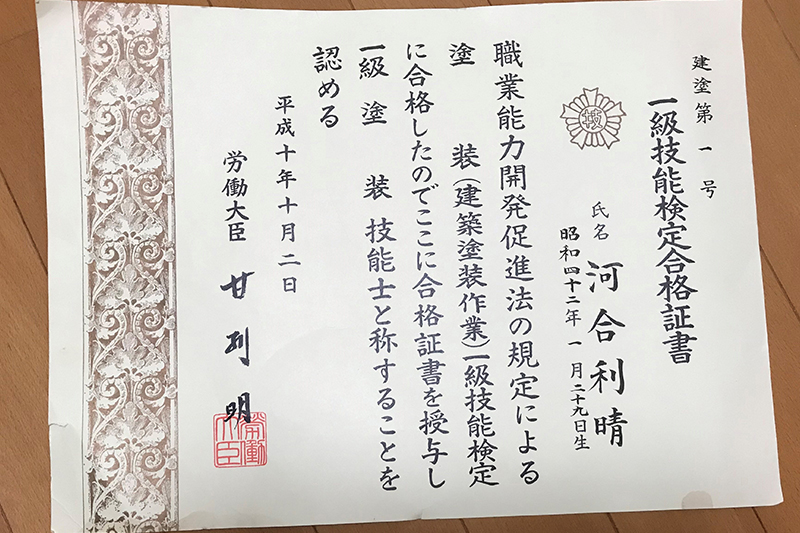 建塗第一号
一級技能検定合格証書
技
氏名 河合利晴
昭和四十二年一月二十九日生
職業能力開発促進法の規定による
塗装(建築塗装作業)一級技能検定
に合格したのでここに合格証書を授与し
一級塗装技能士と称することを
認める
平成十年十月二日
労働大臣 甘利明
労働大臣